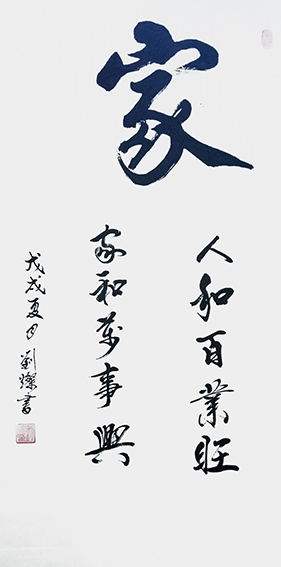 家
人和百業旺
家和萬事興
戊戌夏月劉燦書